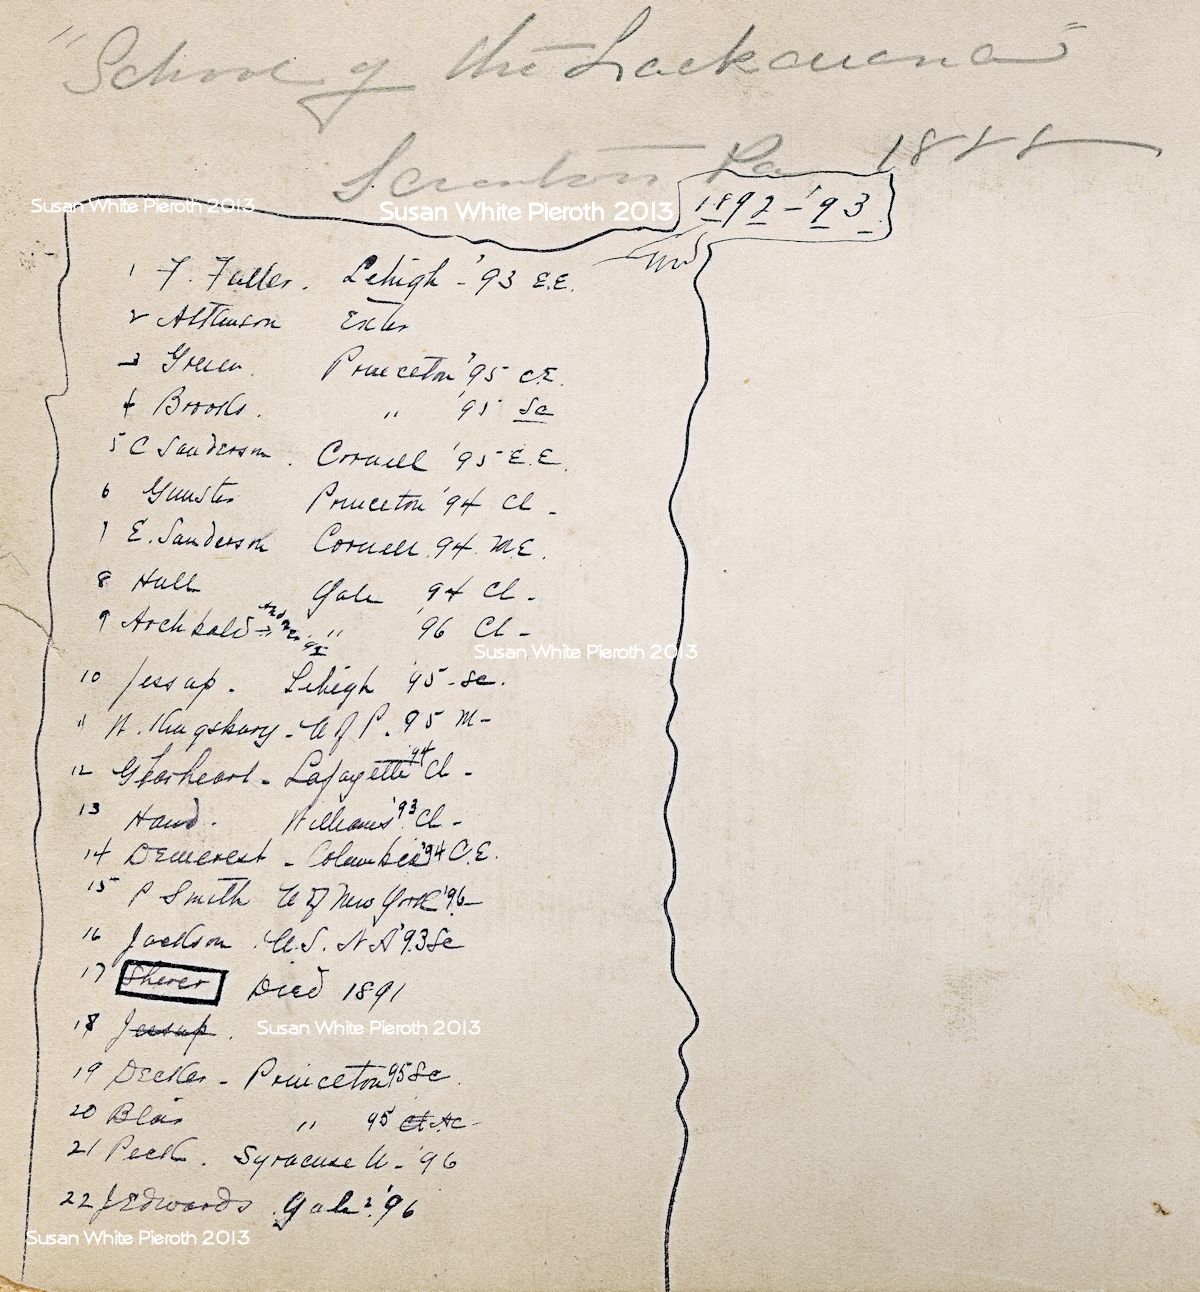 "School of the Lackawana"
Scranton Pa 1888
Susan White Pieroth 2013
Susan White Pieroth 2013
1892-'93.
1 F. Fuller. Lehigh - '93 E.E.
2 Atkinson Exter
3 Green. Princeton '95 C.E.
4 Brooks. " '95 Sc
5 C Sanderson. Cornell '95 E.E.
6 Gunster Princeton '94 Cl -
7 E. Sanderson Cornell. 94. M.E.
8 Hull Yale 94 Cl -
9 Archbald → Andover '92 " '96 Cl -
Susan White Pieroth 2013
10 Jessup. Lehigh '95 - Sc.
11 W. Kingsbury - U of P. 95 M -
12 Gearheart - Lafayette '94 Cl -
13 Hand. Williams '93 Cl -
14 Demerest - Columbia '94 C.E.
15 P Smith U of New York '96 -
16 Jackson. U.S. N A '93 Sc
17 Sherer Died 1891
18 Jessup.
Susan White Pieroth 2013
19 Decker - Princeton 95 Sc.
20 Blair " 95 Cl Ac -
21 Peck. Syracuse U - '96
22 J Edwards. Yale '96
Susan White Pieroth 2013